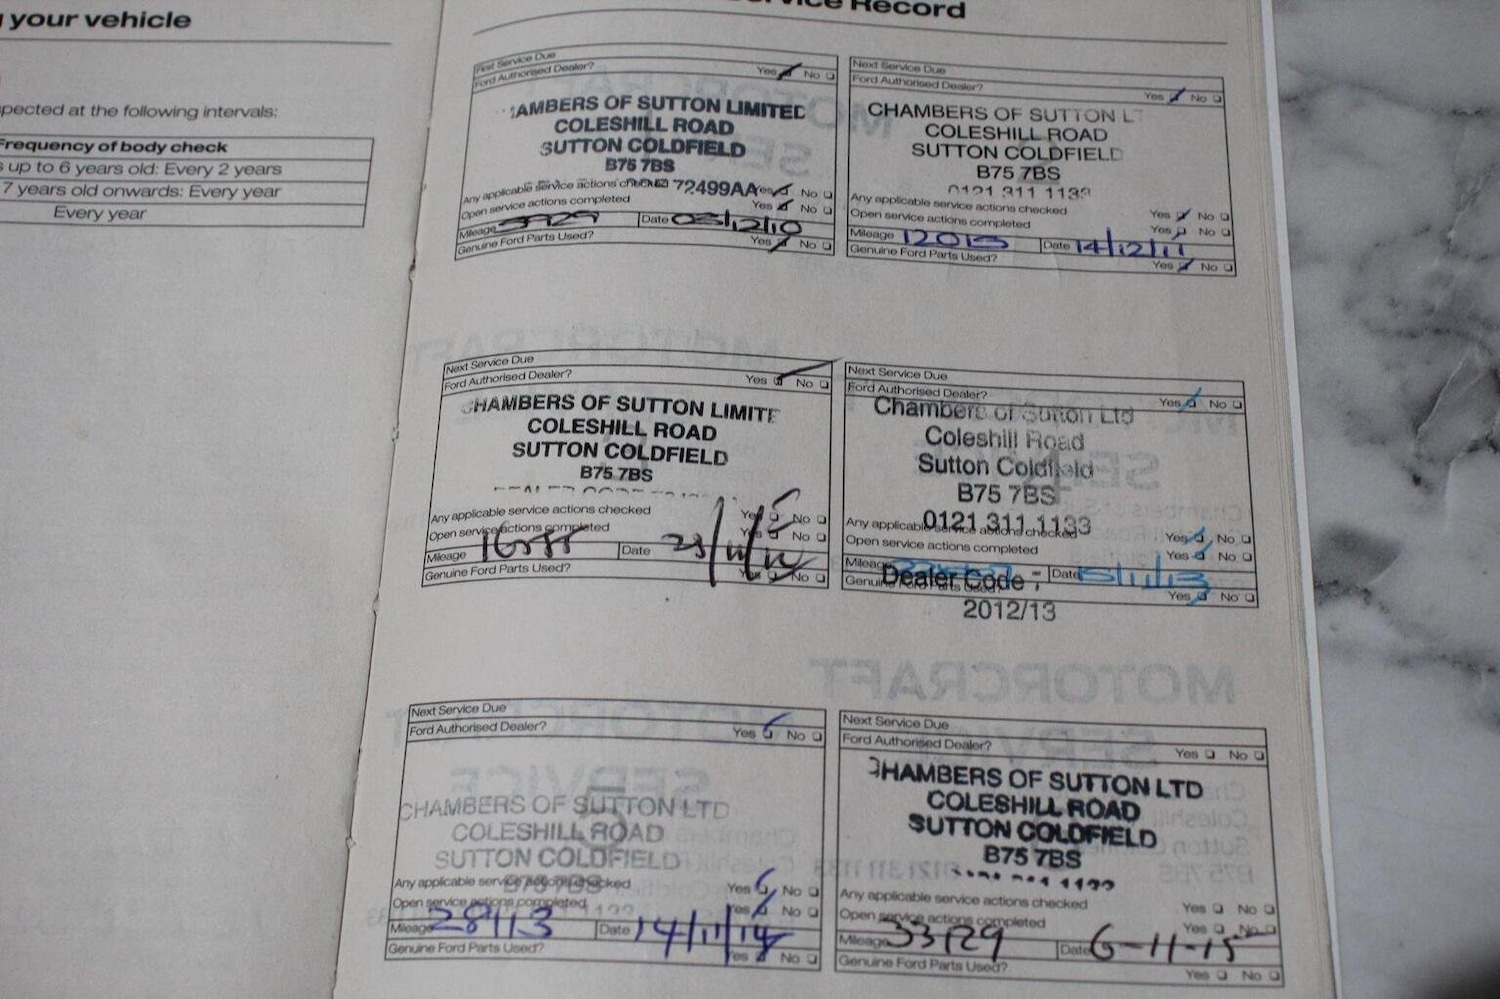 your vehicle
pected at the following intervals:
Frequency of body check
s up to 6 years old: Every 2 years
7 years old onwards: Every year
Every year
Record
First Service Due
Ford Authorised Dealer? Yes No
AMBERS OF SUTTON LIMITED
COLESHILL ROAD
SUTTON COLDFIELD
B75 7BS
72499AA
Any applicable service actions checked Yes No
Open service actions completed Yes No
Mileage Date 03/12/10
Genuine Ford Parts Used? Yes No
Next Service Due
Ford Authorised Dealer? Yes No
CHAMBERS OF SUTTON LT
COLESHILL ROAD
SUTTON COLDFIELD
B75 7BS
0121 311 1133
Any applicable service actions checked Yes No
Open service actions completed Yes No
Mileage 12013 Date 14/12/11
Genuine Ford Parts Used? Yes No
Next Service Due
Ford Authorised Dealer? Yes No
CHAMBERS OF SUTTON LIMITE
COLESHILL ROAD
SUTTON COLDFIELD
B75 7BS
Any applicable service actions checked Yes No
Open service actions completed Yes No
Mileage Date 23/11/12
Genuine Ford Parts Used? Yes No
Next Service Due
Ford Authorised Dealer? Yes No
Chambers of Sutton Ltd
Coleshill Road
Sutton Coldfield
B75 7BS
0121 311 1133
Any applicable service actions checked Yes No
Open service actions completed Yes No
Mileage Date 15/11/13
Genuine Ford Parts Used? Yes No
Dealer Code :
2012/13
Next Service Due
Ford Authorised Dealer? Yes No
CHAMBERS OF SUTTON LTD
COLESHILL ROAD
SUTTON COLDFIELD
B75 7BS
Any applicable service actions checked Yes No
Open service actions completed Yes No
Mileage 28413 Date 14/11/14
Genuine Ford Parts Used? Yes No
Next Service Due
Ford Authorised Dealer? Yes No
CHAMBERS OF SUTTON LTD
COLESHILL ROAD
SUTTON COLDFIELD
B75 7BS
Any applicable service actions checked Yes No
Open service actions completed Yes No
Mileage Date 6-11-15
Genuine Ford Parts Used? Yes No